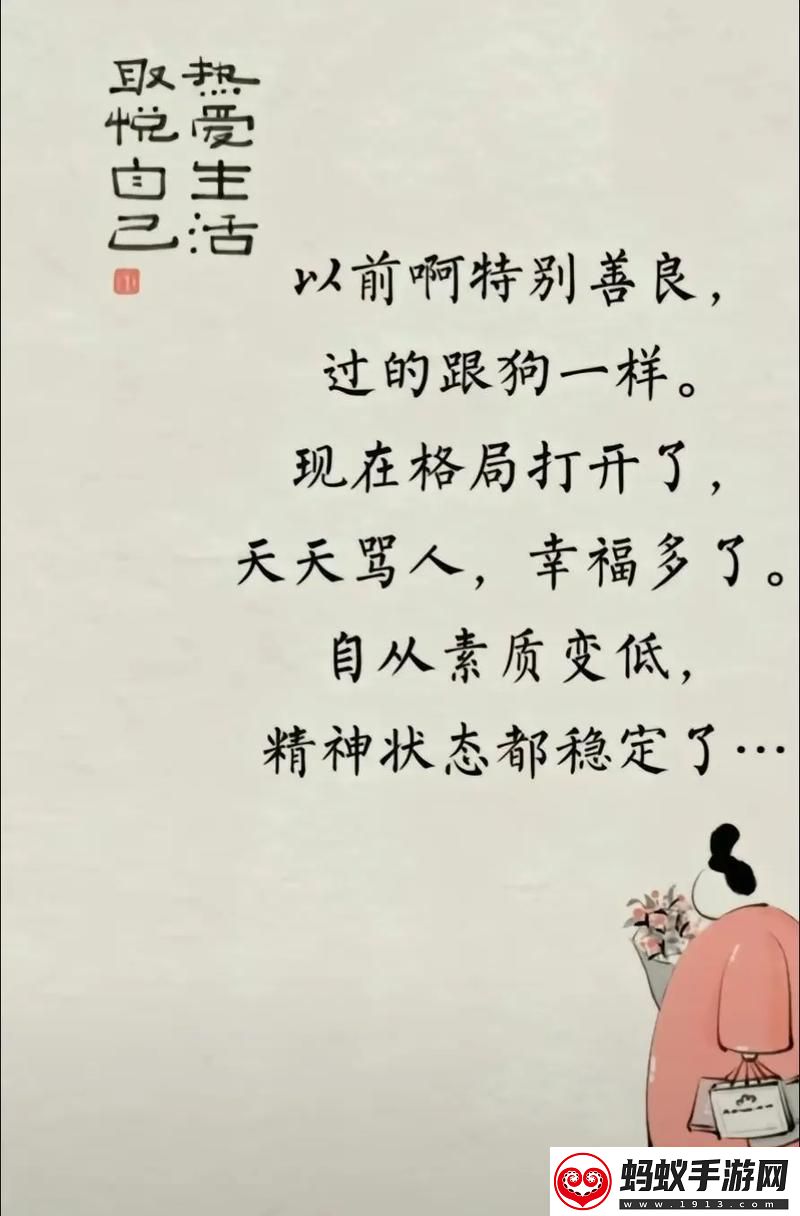 热爱生活
取悦自己
以前啊特别善良，
过的跟狗一样。
现在格局打开了，
天天骂人，幸福多了。
自从素质变低，
精神状态都稳定了…
蚂蚁手游网
www.1913.com